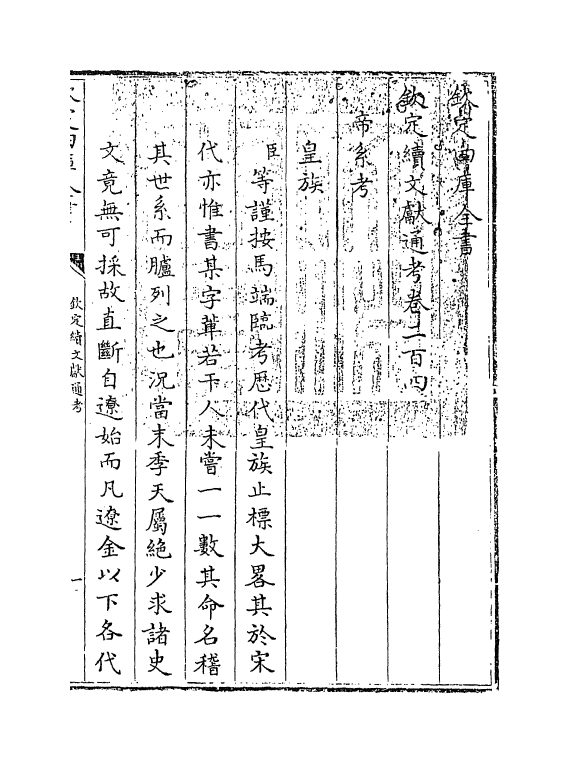 欽定四庫全書
欽定續文獻通考卷二百四
帝系考
皇族
臣等謹按馬端臨考歷代皇族止標大畧其於宋
代亦惟書某字輩若干人未嘗一一數其命名稽
其世系而臚列之也況當末季天屬絶少求諸史
文竟無可採故直斷自遼始而凡遼金以下各代
欽定續文獻通考
一